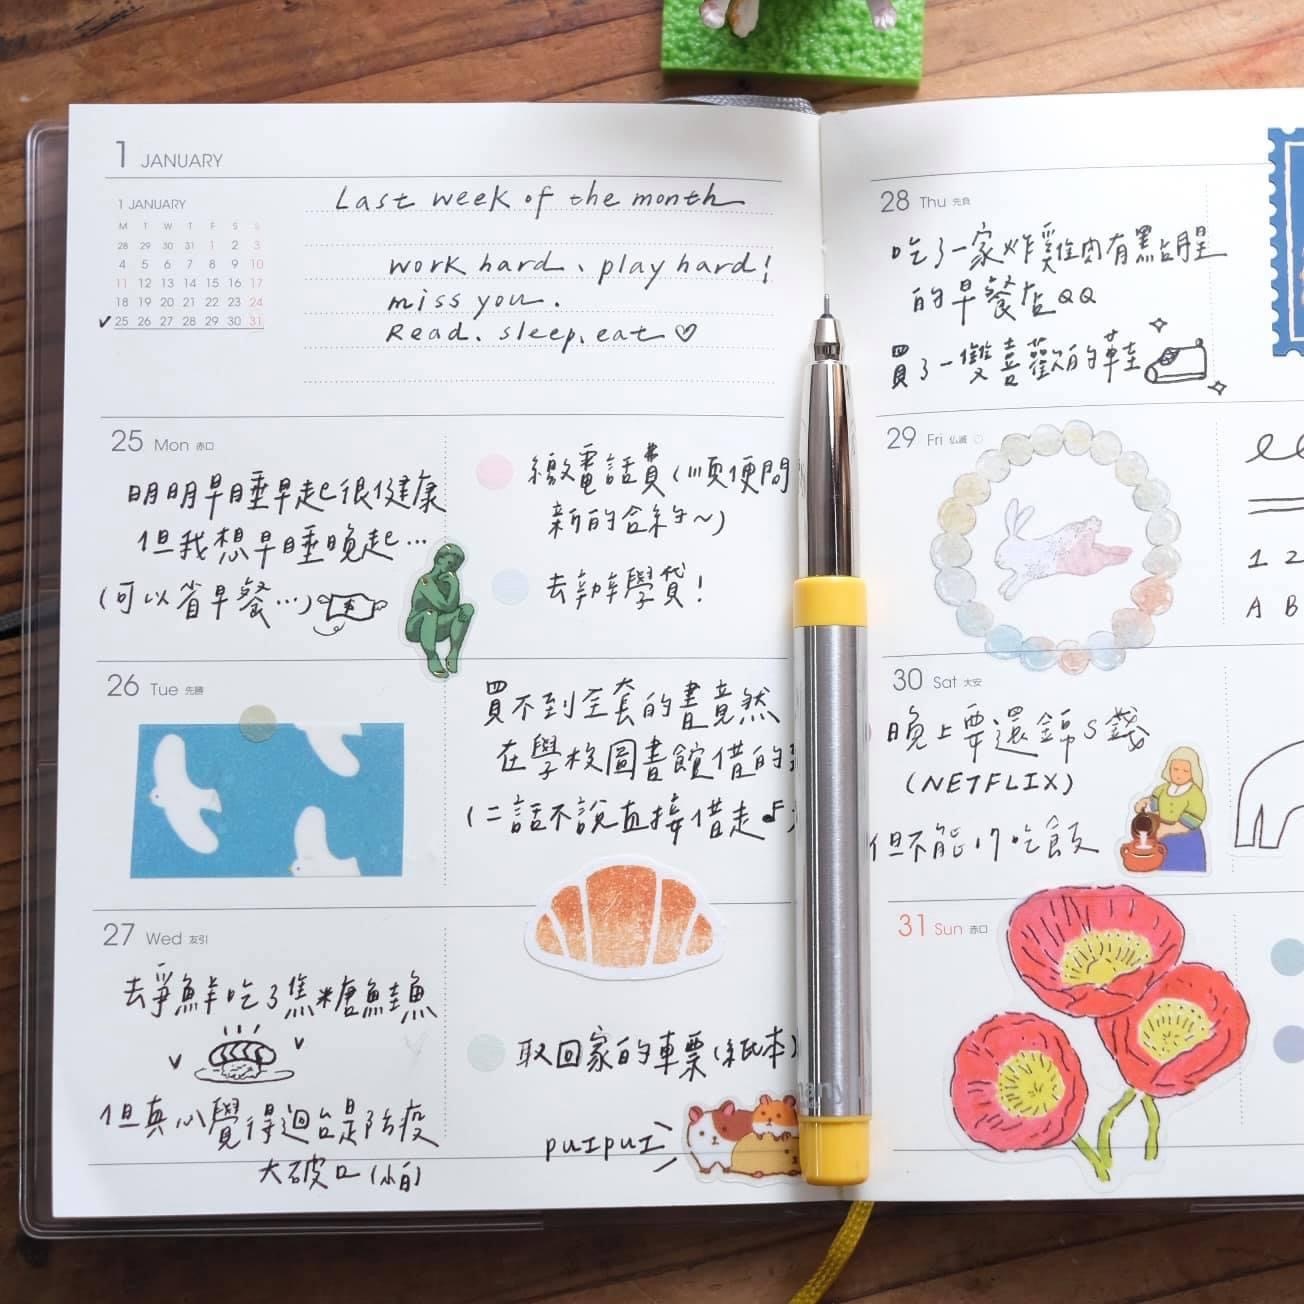 1 JANUARY
1 JANUARY
M T W T F S S
28 29 30 31 1 2 3
4 5 6 7 8 9 10
11 12 13 14 15 16 17
18 19 20 21 22 23 24
✓ 25 26 27 28 29 30 31
Last week of the month
work hard、play hard!
miss you.
Read. sleep. eat ♡
25 Mon 赤口
明明早睡早起很健康
但我想早睡晚起…
(可以省早餐…)
繳電話費(順便問
新的合約~)
去辦學貸!
26 Tue 先勝
買不到全套的書竟然
在學校圖書館借的
(二話不說直接借走♪
27 Wed 友引
去爭鮮吃了焦糖鮭魚
但真心覺得迴台是防疫
大破口(怕)
取回家的車票(紙本)
puIpuI
28 Thu 先負
吃了一家炸雞肉有點腥
的早餐店QQ
買了一雙喜歡的鞋
29 Fri 仏滅
1 2
A B
30 Sat 大安
晚上要還錦S錢
(NETFLIX)
但不能吖吃飯
31 Sun 赤口